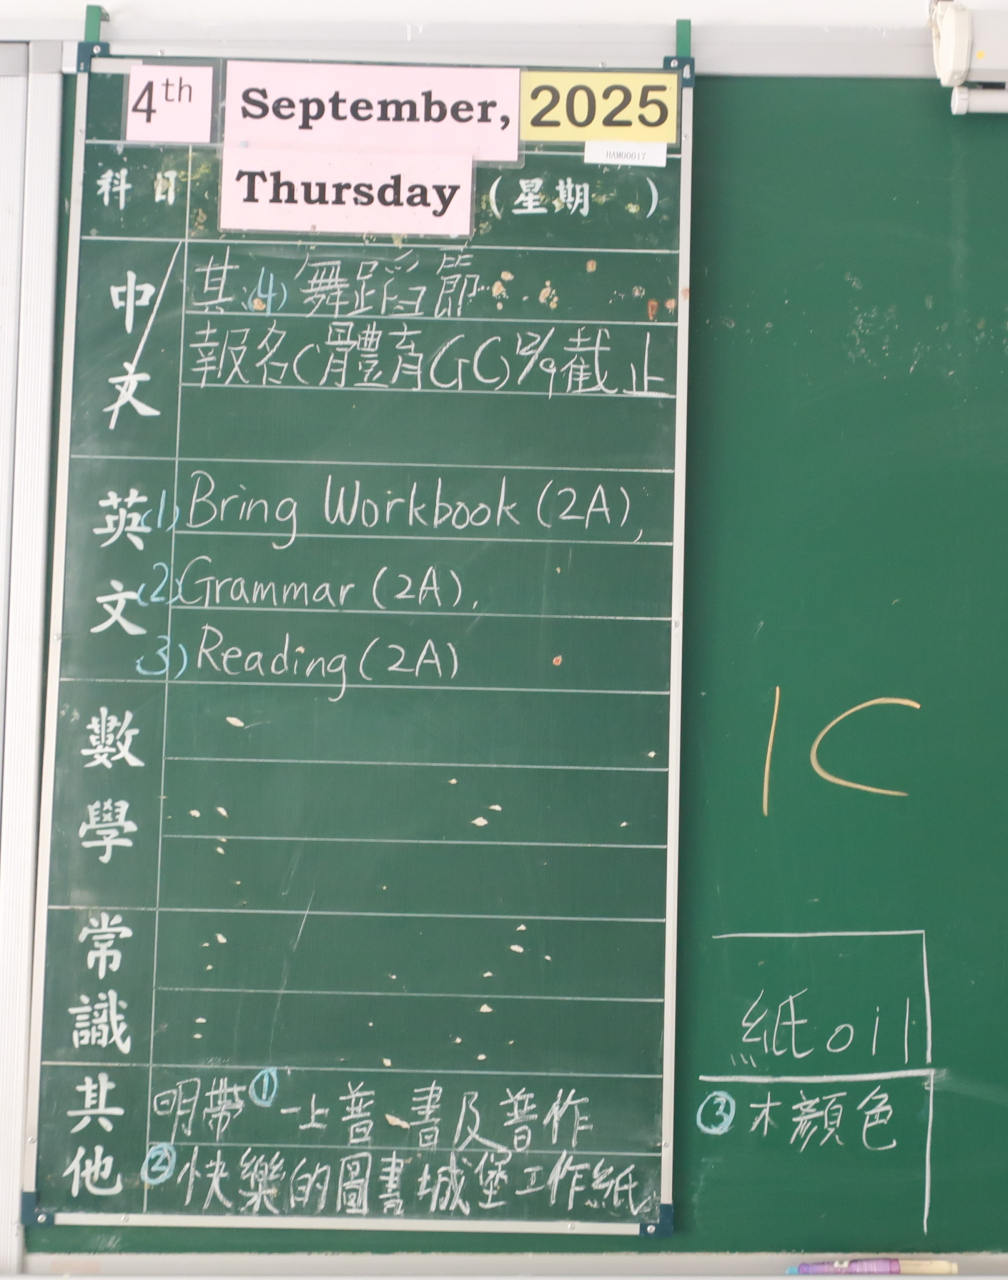 4th September, 2025
HAM00017
科目 Thursday (星期 )
中文 其(4) 舞蹈節
報名(體育GC)12/9截止
英文 (1) Bring Workbook (2A),
(2) Grammar (2A),
(3) Reading (2A)
數學
常識
其他 明帶① 一上普書及普作
②快樂的圖書城堡工作紙
1C
紙oil
③木顏色